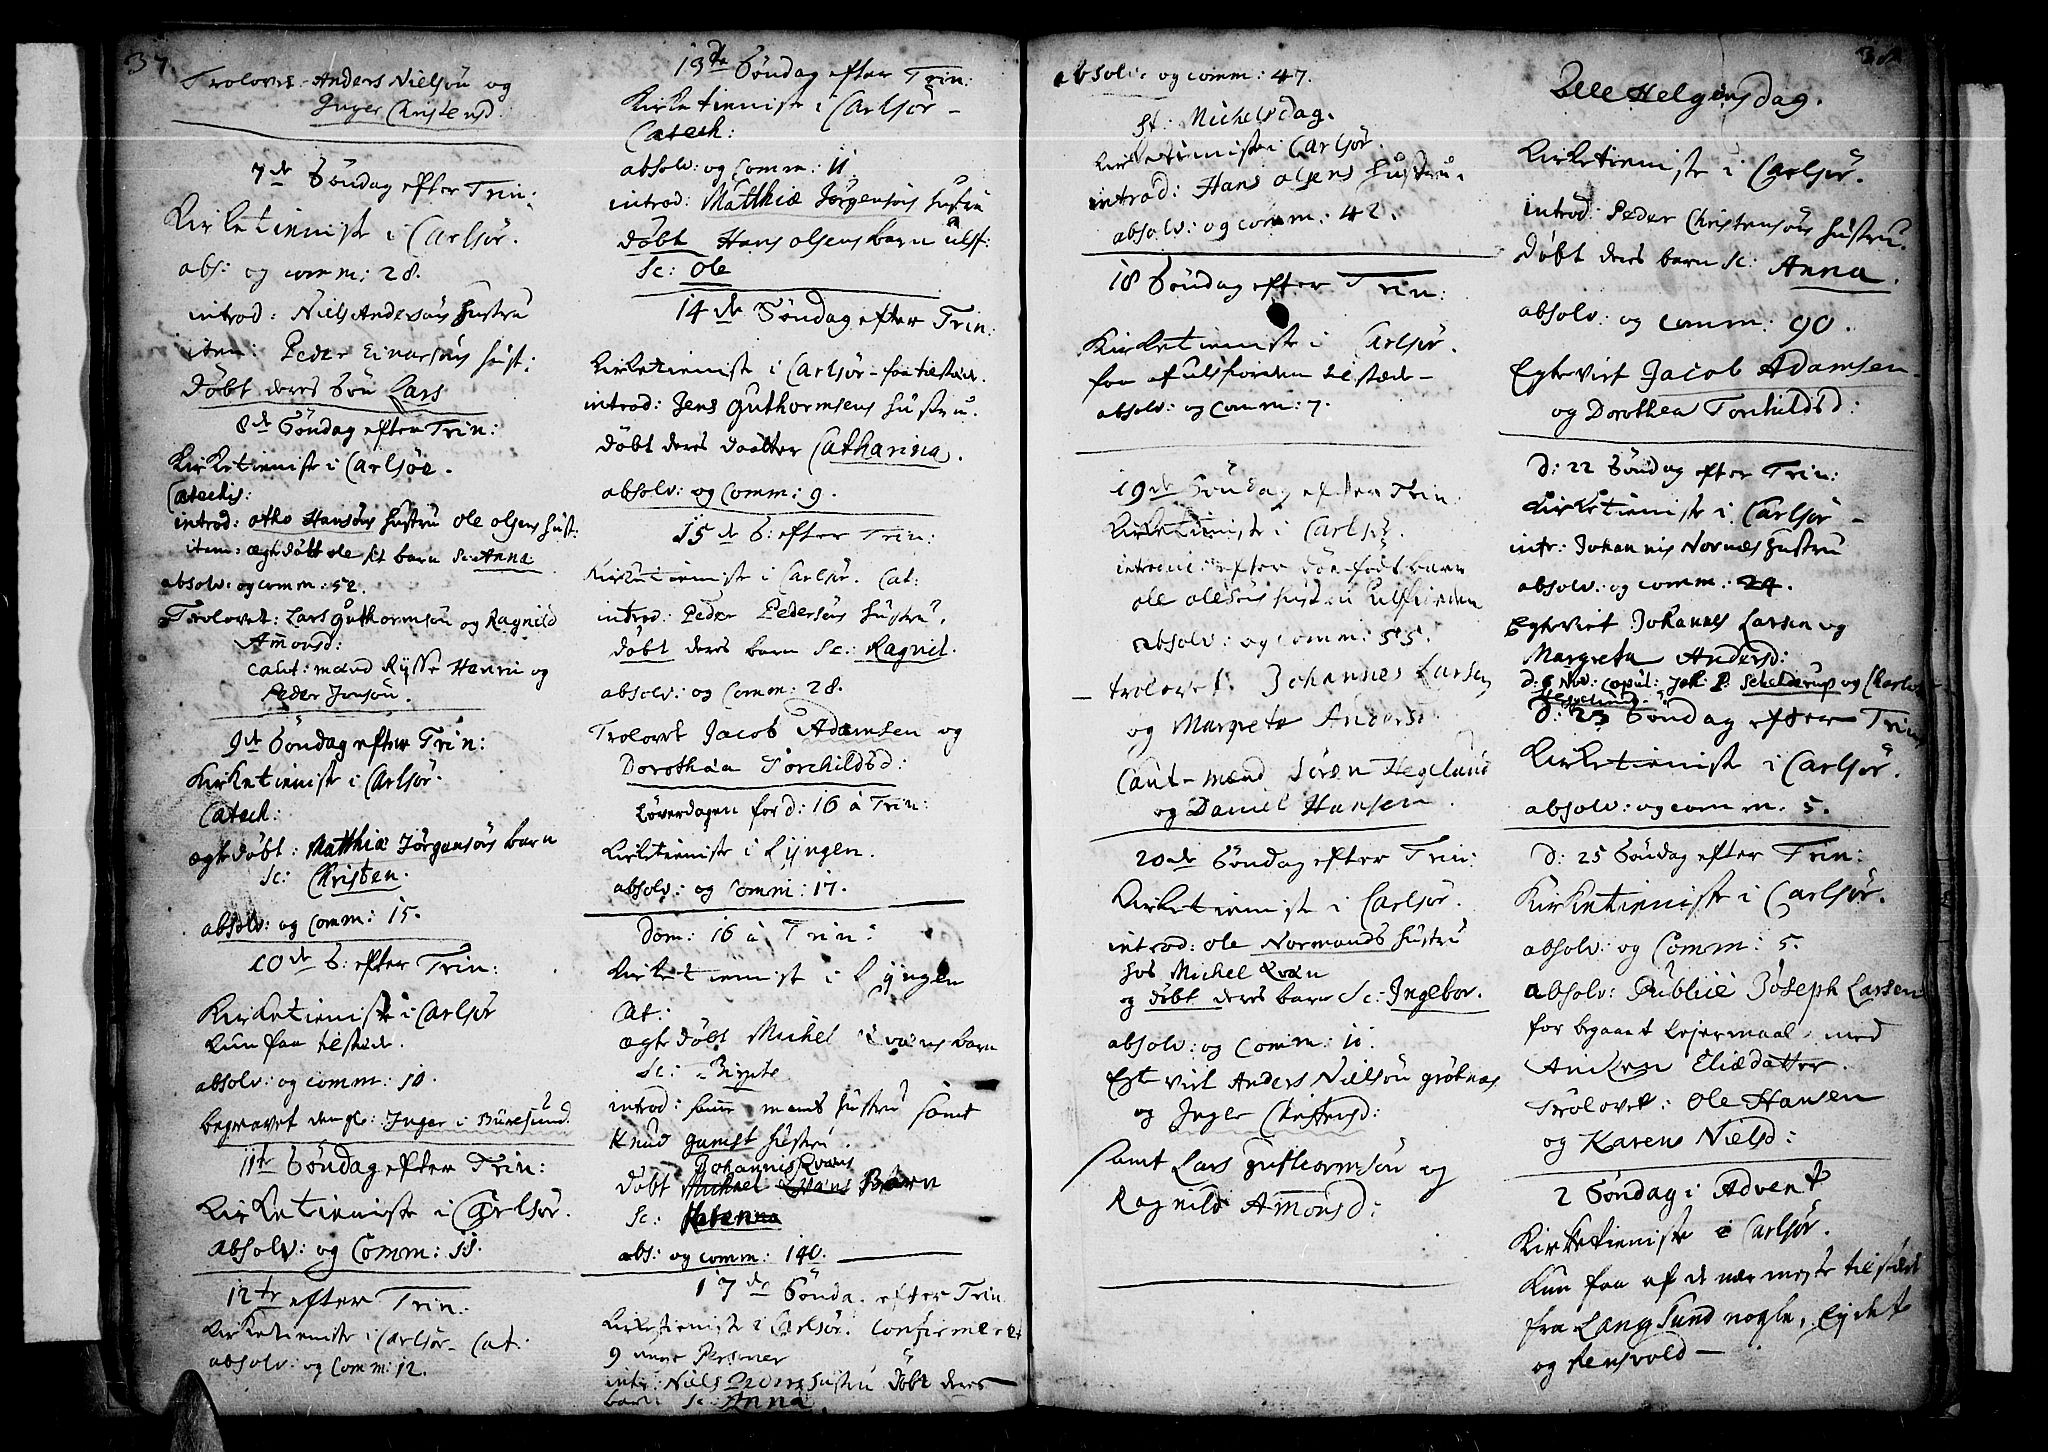 37.
Trolovet Anders Nielsøn og
Inger Christensd.
7de Søndag efter Trin:
Kirketieniste i Carlsøe.
abs: og comm: 28.
introd: Niels Andersøns Hustru
item: Peder Einarsøns Hust:
døbt deres Søn Lars
8de Søndag efter Trin:
Kirketieniste i Carlsøe.
Catechis:
introd: Otho Hansøns Hustru Ole Olsens Hust:
item: ægte døbt barn Sc: Anna
absolv: og comm: 52.
Trolovet: Lars Guthormsøn og Ragnild
Amonsd:
Caut: mænd Henri og
Peder Jonsøn.
9de Søndag efter Trin:
Kirketieniste i Carlsøe.
Catech:
ægte døbt: Matthiæ Jørgensøns barn
Sc: Christen.
absolv: og Comm: 15.
10de S: efter Trin:
Kirketieniste i Carlsøe
kun faa tilstede.
absolv: og comm: 10.
begravet den gl: Inger i Buresund.
11te Søndag efter Trin:
Kirketieniste i Carlsøe.
absolv: og Comm: 11.
12te efter Trin:
Kirketieniste i Carlsøe. Cat:
absolv: og Comm: 12.
13de Søndag efter Trin:
Kirketieniste i Carlsøe
Catech:
absolv: og Comm: 11.
introd: Matthiæ Jørgensøns Hustru
døbt Hans Olsens barn ulsf:
Sc: Ole
14de Søndag efter Trin:
Kirketieniste i Carlsøe - faa tilstede.
introd: Jens Guthormsens Hustru.
døbt deres daatter Catharina.
absolv: og Comm: 9.
15de S: efter Trin:
Kirketieniste i Carlsøe. Cat:
introd: Peder Pedersøns Hustru.
døbt deres barn Sc: Ragnil.
absolv: og Comm: 28.
Trolovet Jacob Adamsen og
Dorothea Torchildsd:
Løverdagen for d: 16 à Trin:
Kirketieniste i Lyngen.
absolv: og Comm: 17.
Dom: 16 à Trin:
Kirketieniste i Lyngen
Cat:
ægte døbt Michel Qvæns barn
Sc: Birgite
introd: samme mands Hustru samt
Knud Hustru.
Johannis Qvæns
døbt Michael Qvæns Barn
Sc:
abs: og comm: 140.
17de Sønda. efter Trin
Kirketieniste i Carlsøe. Confirmeret
9 unge Personer
intr: Niels Hustru døbt deres
barn Sc: Anna
38
absolv: og comm: 47.
St: Michelsdag.
Kirketieniste i Carlsøe.
introd: Hans Olsens Hustru.
absolv: og comm: 42.
18 Søndag efter Trin:
Kirketieniste i Carlsøe.
faa af ulsfiorden tilstede -
absolv: og Comm: 7.
19de Søndag efter Trin:
Kirketieniste i Carlsøe.
introd: efter dødfødt barn
Ole Olesøns Hustru i ulsfiorden
absolv: og comm: 55.
trolovet: Johannes Larsen
og Margrete Andersd:
Caut-mænd Søren Hegelund
og Daniel Hansen.
20de Søndag efter Trin:
Kirketieniste i Carlsøe.
introd: Ole Normands Hustru
hos Michel Qvæn
og døbt deres barn Sc: Ingebor.
absolv: og Comm: 11.
Egteviet Anders Nielsøn grøtnæs
og Inger Christensd:
samt Lars Guthormsøn og
Ragnild Amonsd:
Alle Helgensdag.
Kirketieniste i Carlsøe.
introd: Peder Christensøns Hustru.
døbt deres barn Sc: Anna.
absolv: og Comm: 90.
Egteviet Jacob Adamsen
og Dorothea Torchildsd:
D: 22 Søndag efter Trin:
Kirketieniste i Carlsøe
intr: Johannis Normes Hustru
absolv: og comm: 24.
Egteviet Johannes Larsen og
Margreta Andersd:
d: 6 Nov: Copul: Joh: P: Schelderup og Charlot
Hegelund.
D: 23 Søndag efter Trin
Kirketieniste i Carlsøe.
absolv: og comm. 5.
D: 25 Søndag efter Trin:
Kirketieniste i Carlsøe.
absolv: og Comm: 5.
absolv: Publicè Joseph Larsen
for begaaet Lejermaal med
Aniken Eliædatter.
Trolovet: Ole Hansen
og Karens Nielsd:
2 Søndag i Advent
Kirketieniste i Carlsøe.
kun faa af de nærmeste tilstede
fra Langsund nogle,
og Rensvold -